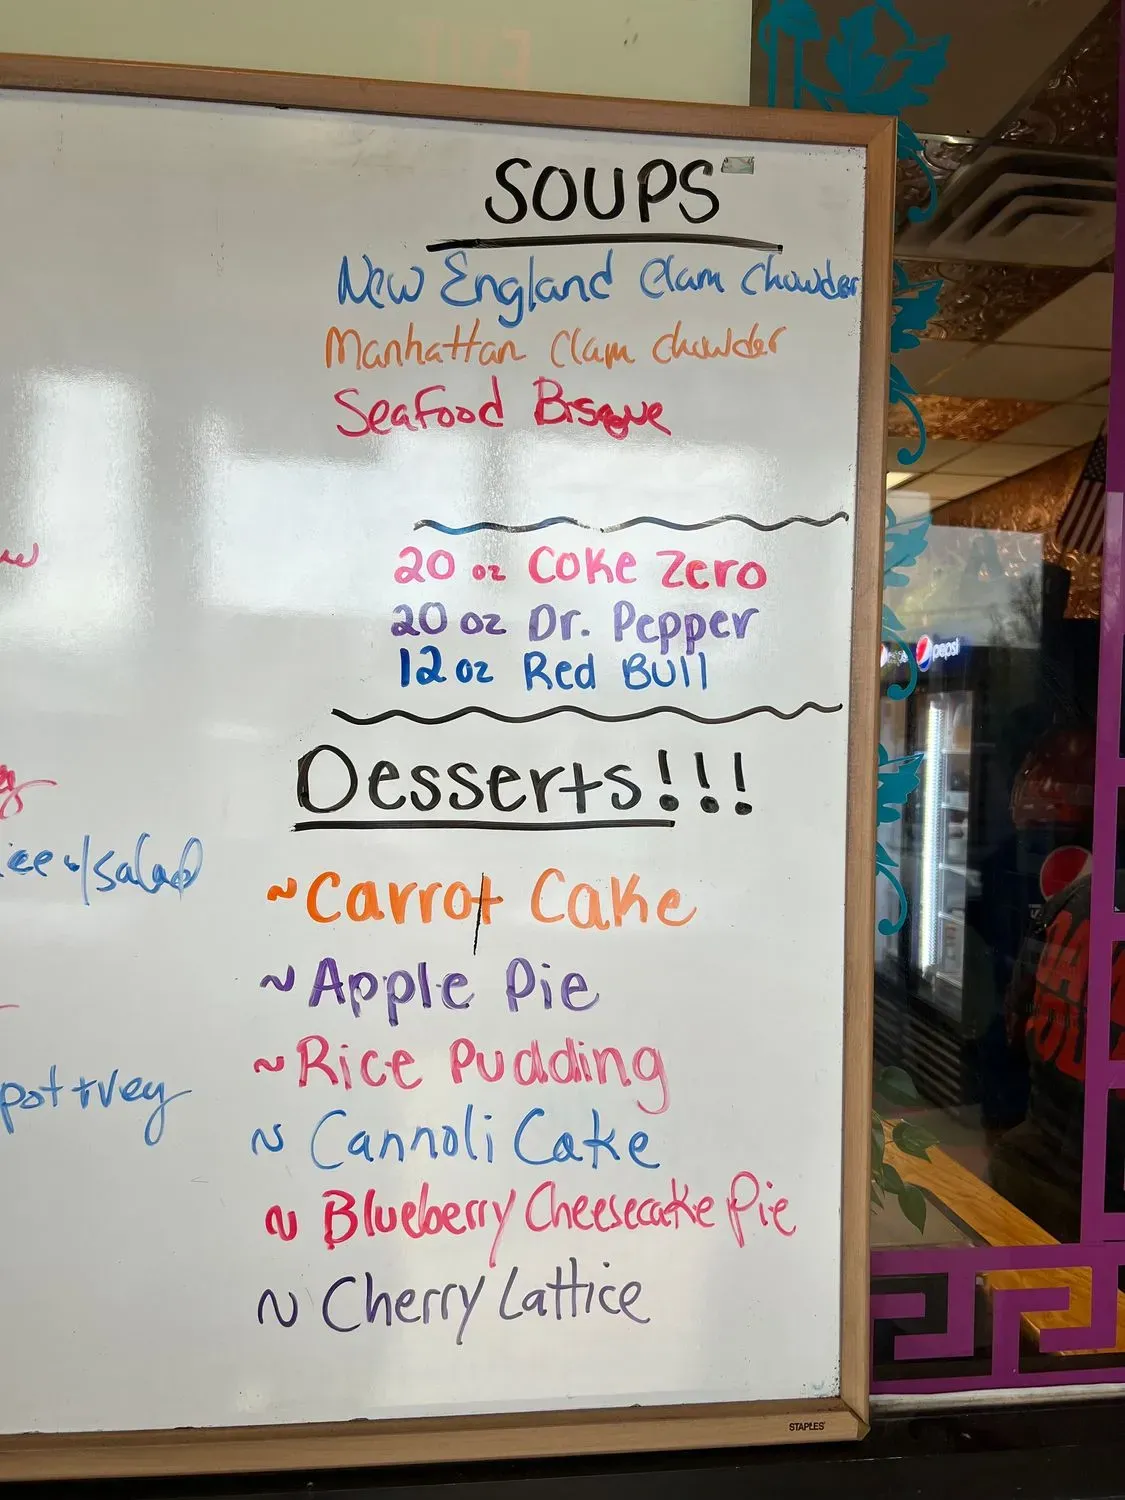 SOUPS
New England Clam Chowder
Manhattan Clam chowder
Seafood Bisque
20 oz Coke Zero
20 oz Dr. Pepper
12 oz Red Bull
Desserts!!!
~Carrot Cake
~Apple Pie
~Rice Pudding
~Cannoli Cake
~Blueberry Cheesecake Pie
~Cherry Lattice
ice w/salad
pot + veg
pepsi
STAPLES